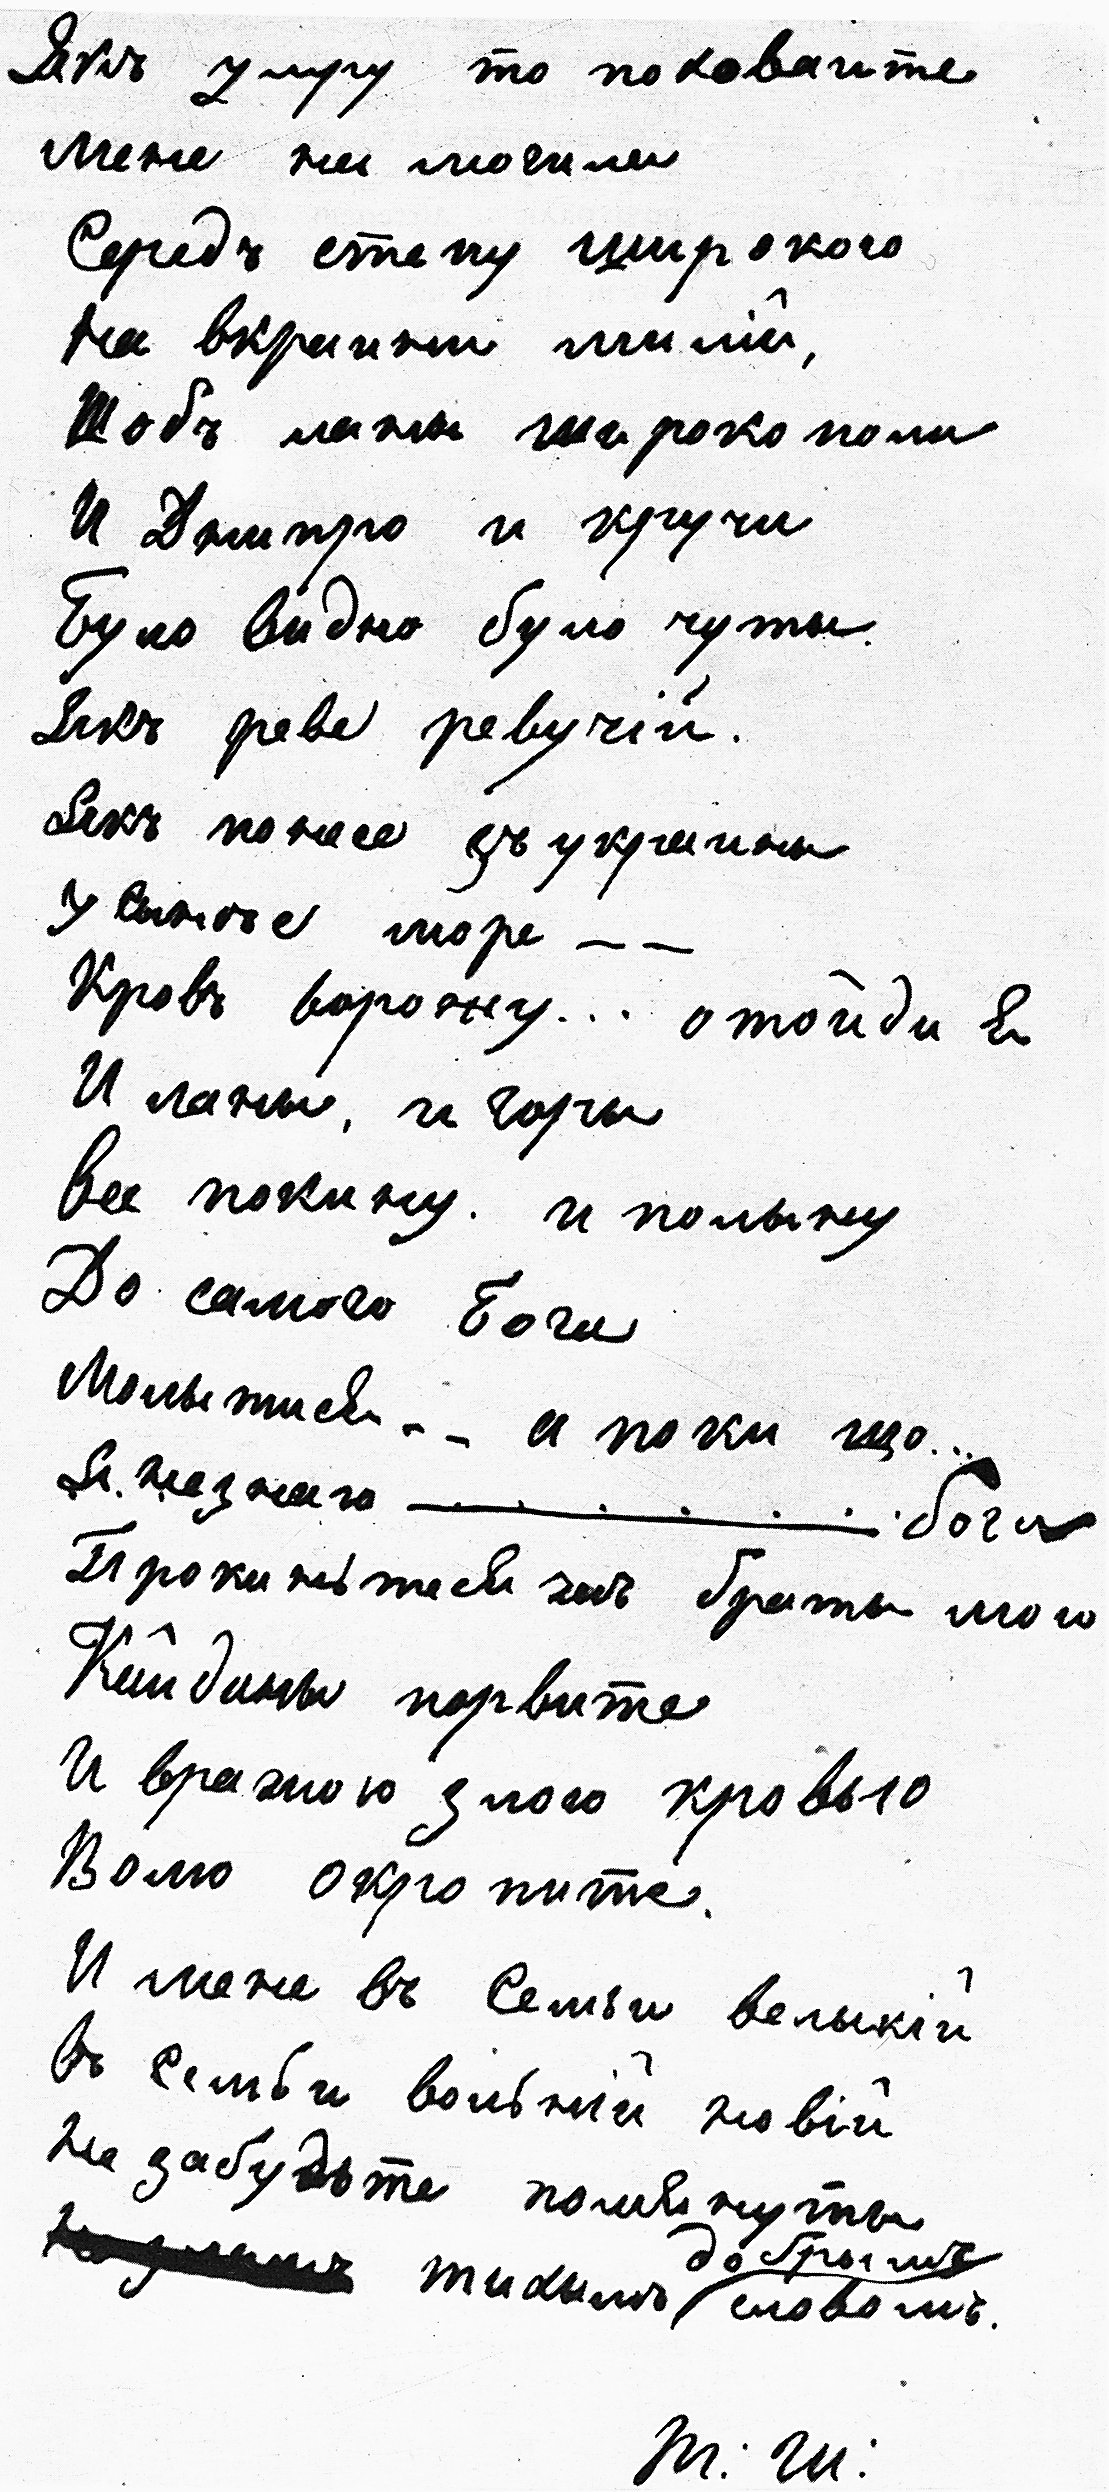 Якъ умру то поховаите
мене на могили
Середъ степу широкого
На вкраини милій,
Щобъ ланы широкополи
И Днипро и кручи
Було видно було чуты.
Якъ реве ревучій.
Якъ понесе зъ украины
у Сынѣе море — —
Кровъ ворожу... отойди я
И ланы, и горы
Все покину. и полыну
До самого Бога
Молытися — — а поки що...
Я. незнаю . . . . . . . бога
Прокиньтеся браты мою
Кайданы порвите
И вражою злою кровью
Волю окропите.
И мене въ Семъи велыкій
въ Семьи вольній новій
Не забудьте помянуты
добрымъ
тихымъ словомъ.
Т: Ш: